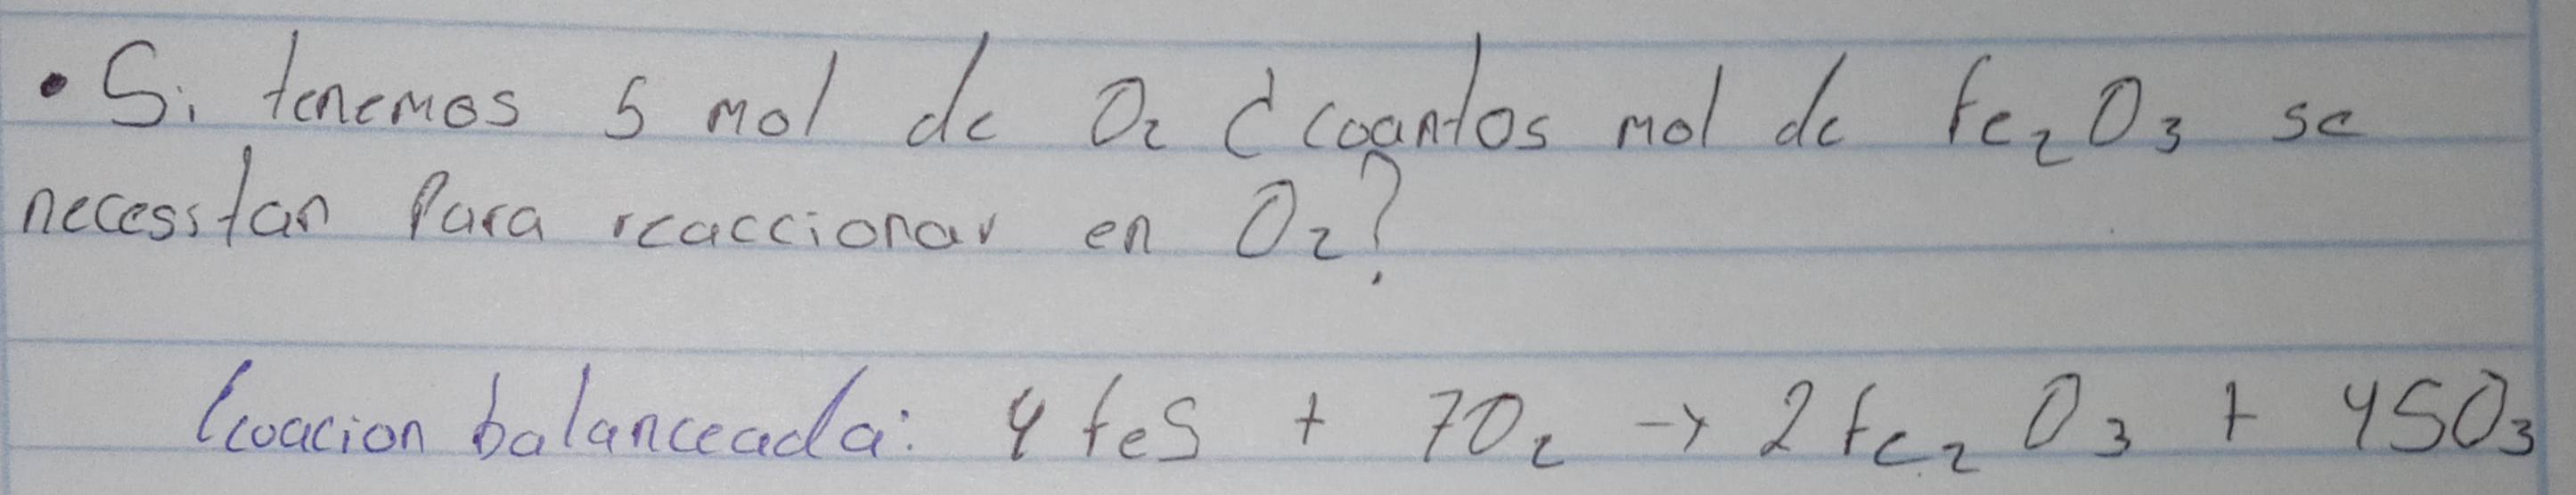 • Si tenemos 5 mol de O₂ ¿cuantos mol de Fe₂O₃ se
necesitan Para reaccionar en O₂?
Ecuacion balanceada: 4 FeS + 7O₂ → 2Fe₂O₃ + 4SO₃